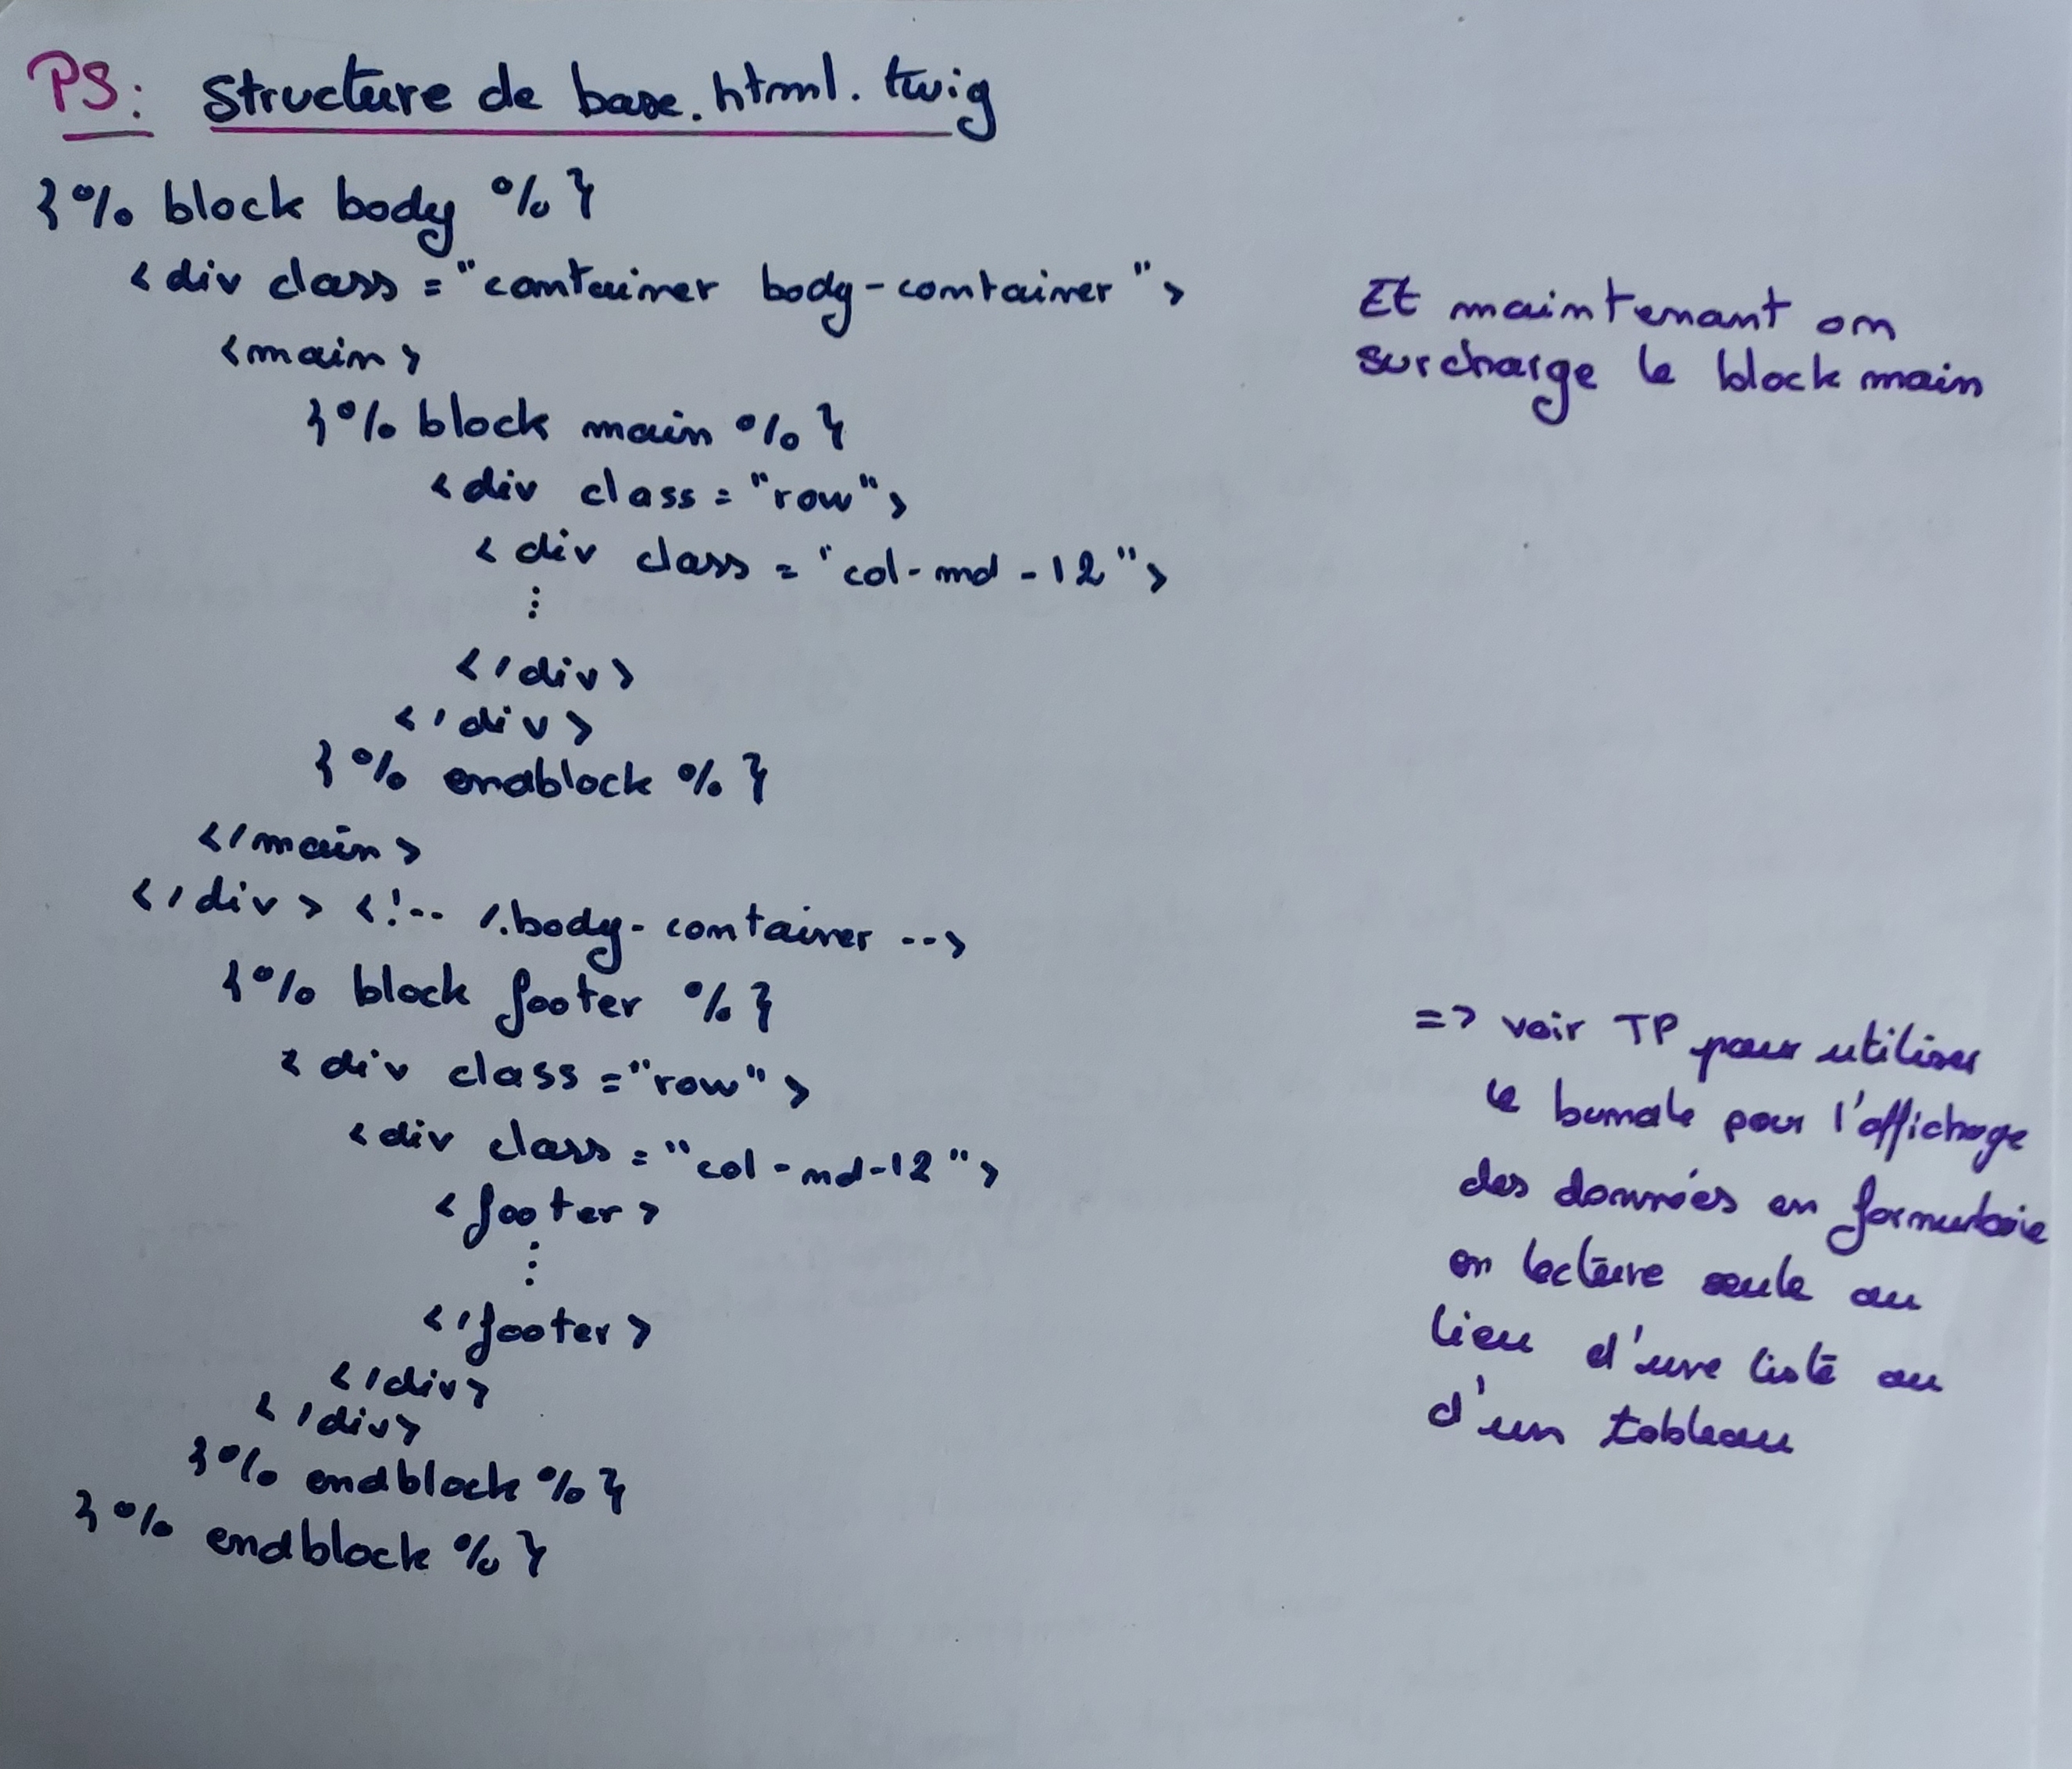 PS: Structure de base.html.twig
{% block body %}
<div class="container body-container">
<main>
{% block main %}
<div class="row">
<div class="col-md-12">
⋮
</div>
</div>
{% endblock %}
</main>
</div> <!-- /.body-container -->
{% block footer %}
<div class="row">
<div class="col-md-12">
<footer>
⋮
</footer>
</div>
</div>
{% endblock %}
{% endblock %}
Et maintenant on
surcharge le block main
=> voir TP pour utiliser
le pour l'affichage
des données en formulaire
en lecture seule au
lieu d'une liste ou
d'un tableau